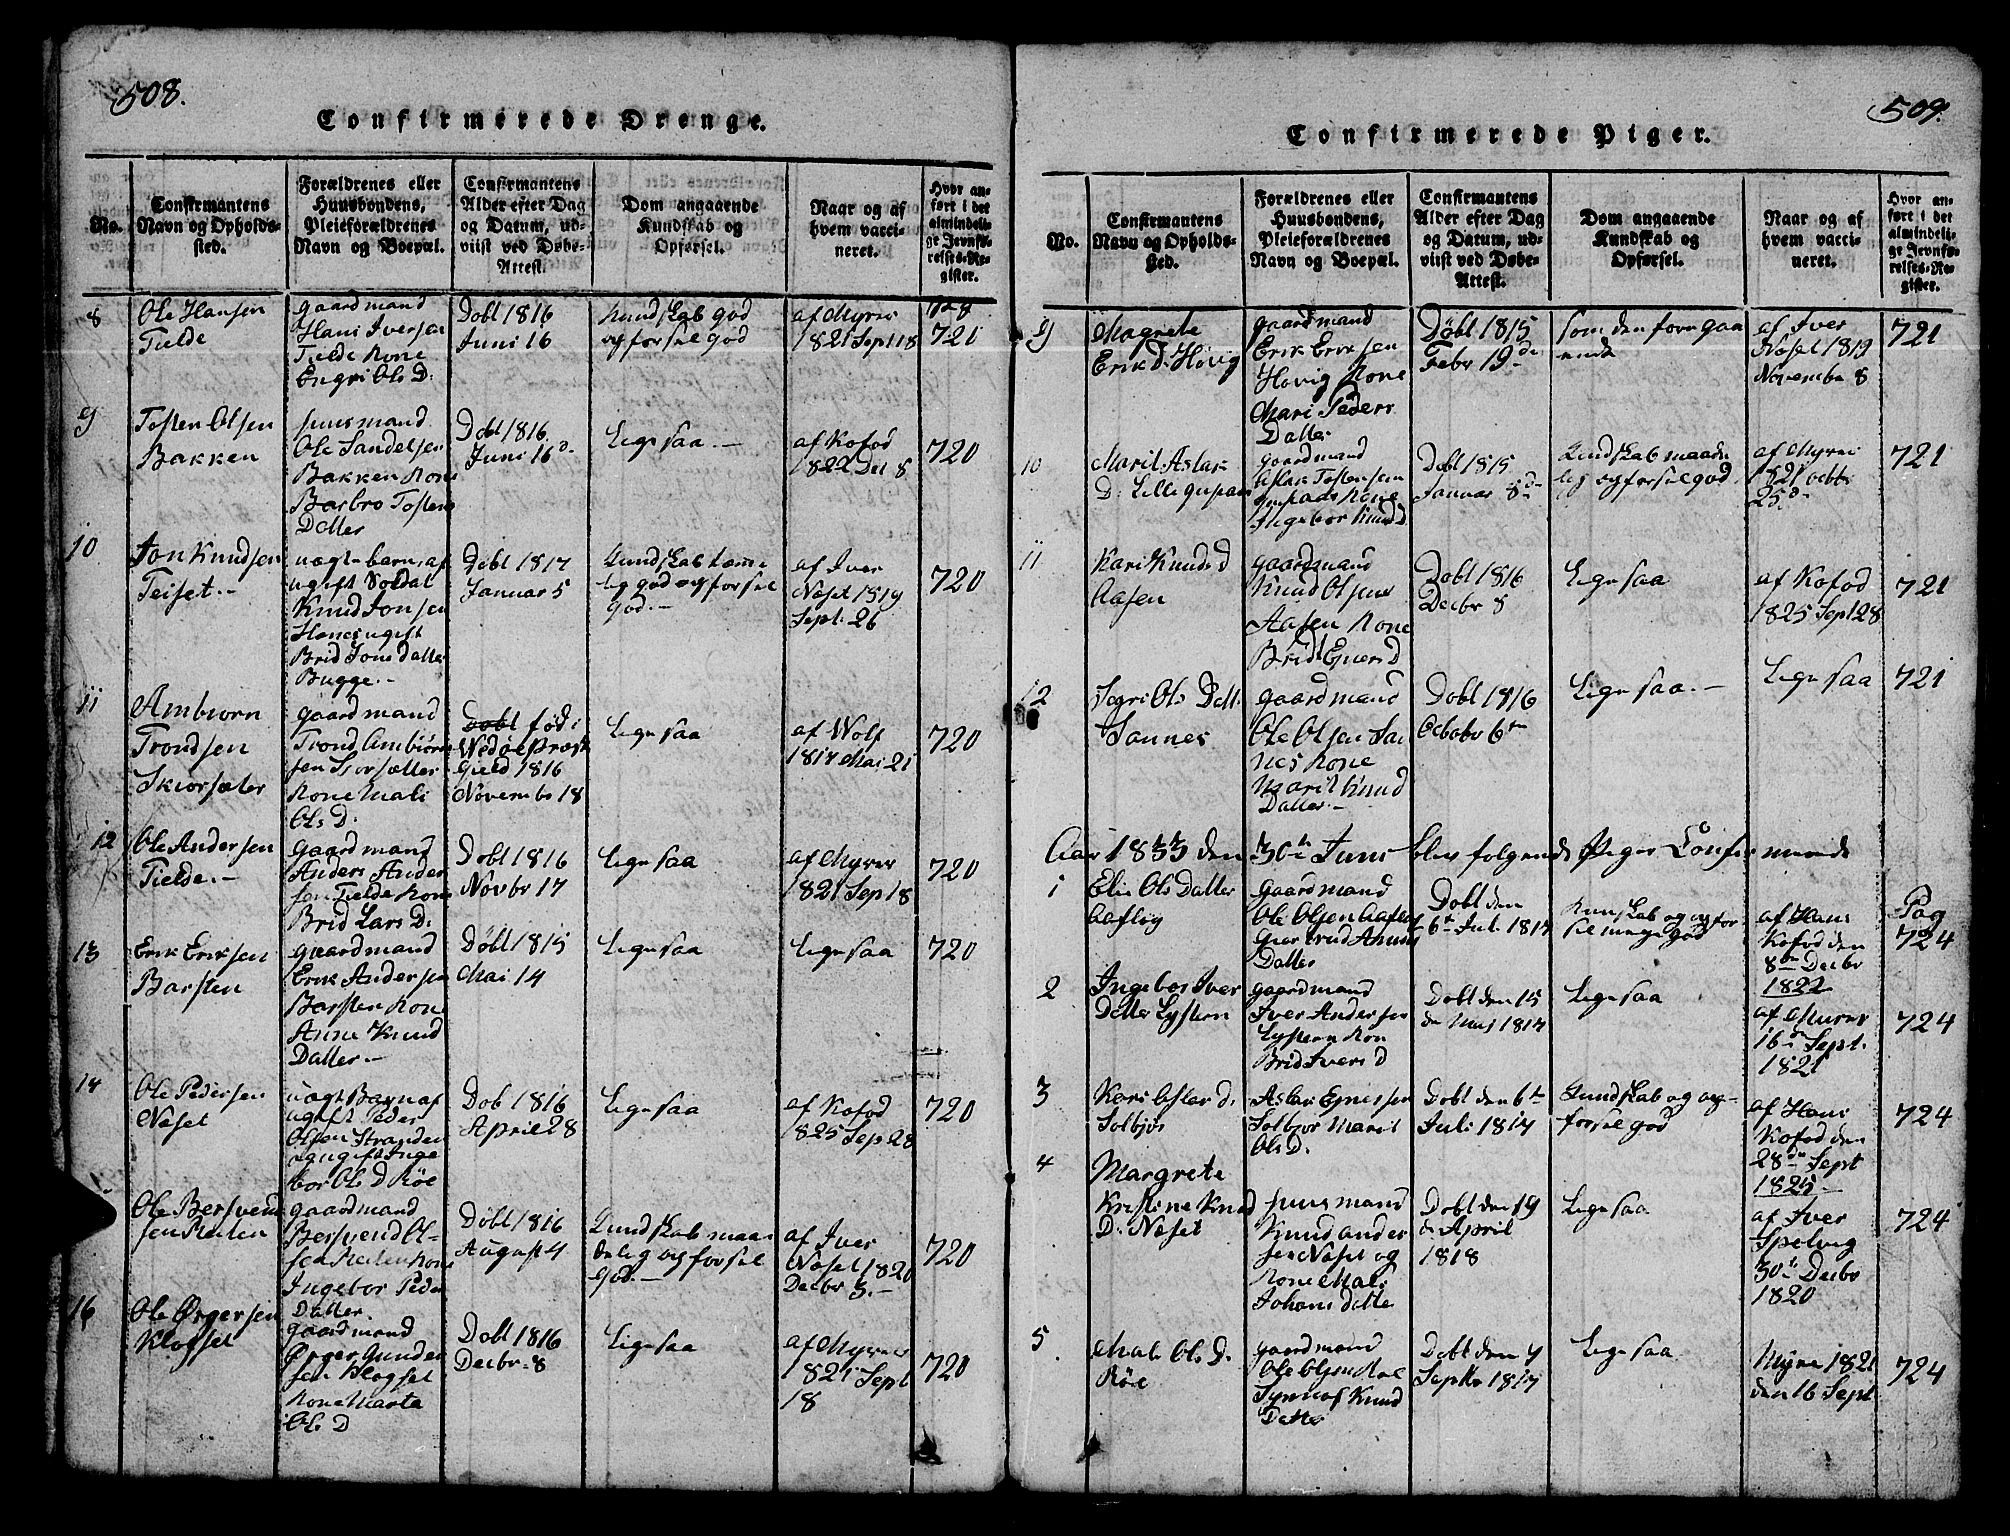 508.
Confirmerede Drenge.
No.
Confirmantens
Navn og Opholds-
sted.
Forældrenes eller
Huusbondens,
Pleieforældrenes
Navn og Boepæl.
Confirmantens
Alder efter Dag
og Datum, ud-
viist ved Døbe-
Attest.
Dom angaaende
Kundskab og
Opførsel.
Naar og af
hvem vacci-
neret.
Hvor an-
ført i det
almindeli-
ge Jevnfø-
relses-Re-
gister.
8
Ole Hansen
Tielde
gaardmand
Hans Iversen
Tielde Kone
Engri Ols D.
Døbt 1816
Juni 16
Kundskab god
opforsel god
af Myrer
1821 Sept 18
721
9
Tosten Olsen
Bakken
huusmand
Ole Sandelsen
Bakken Kone
Barbro Tostens
Datter
Døbt 1816
Juni 16
Ligesaa. —
af Kofod
1822 Des 8
720
10
Jon Knudsen
Teiset. -
uægte barn af
ugift Soldat
Knud Jonsen
Hanes ugift
Brid Jons datter
Bugge. -
Døbt 1817
Januar 5
Kundskab temme
lig god opforsel
god. -
af Iver
Næset 1819
Sept: 26
720
11
Ambiorn
Trondsen
Skiorsæter
gaardmand
Trond Ambiörn
sen Siorsætter
Kone Mali
Ols D.
fød i
Wedøe Præste
Gield 1816
Novembr 18
Ligesaa
af Wolf
1817 Mai 21
720
12
Ole Andersen
Tielde. -
gaardmand
Anders Ander
sen Tielde Kone
Brid Lars D.
Døbt 1816
Novbr 17
Ligesaa
af Myrer
1821 Sep 18
720
13
Erik Eriksen
Barsten
gaardmand
Erik Andersen
Barsten Kone
Anne Knud
Datter. -
Døbt 1815
Mai 14
Ligesaa
Ligesaa
720
14
Ole Pedersen
Næset
uægt Barn af
ugift Peder
Olsen Stranden
og ugift Inge
bor Ols D Röe
Døb 1816
Aprie 28
Ligesaa
af Kofod
1825 Sep 28
720
Ole Bersvend
sen Reiten
gaardmand
Bersvend Ol-
sen Reiten Kone
Ingebor Peder
Datter
Døbt 1816
August 4
Kundskab maa
delig opforsel
god. -
af Iver
Næset 1820
Decbr 3. -
720
16
Ole Ørgersen
Klogset
gaardmand
Ørger Gunder
sen Klogset
Kone Marta
Ols D
Døbt 1816
Decbr 8
Ligesaa
af Myrer
1821 Sept
18
720
509.
Confirmerede Piger.
No.
Confirmantens
Navn og Opholds-
sted.
Forældrenes eller
Huusbondens,
Pleieforældrenes
Navn og Boepæl.
Confirmantens
Alder efter Dag
og Datum, ud-
viist ved Døbe-
Attest.
Dom angaaende
Kundskab og
Opførsel.
Naar og af
hvem vacci-
neret.
Hvor an-
ført i det
almindeli-
ge Jevnfø-
relses-Re-
gister.
9
Magrete
Erik D. Hovig
gaardmand
Erik Eriksen
Hovig Kone
Mari Peders
Datter
Døbt 1815
Febr 19de
som den foregaa
ende
af Iver
Næset 1819
Novembr 8
721
10
Marit Aslak
D. Lille
gaardmand
Aslak Tostensen
Kone
Ingebor Knud D
Døbt 1815
Januar 8de
Kundskab maade
lig opforsel god
af Myrer
1821 octbr
25d
721
11
Kari Knuds D
Aasen
gaardmand
Knud Olsen
Aasen Kone
Brid Ejners D
Døbt 1816
Decbr 8
Ligesaa
af Kofod
1825 Sept 28
721
12
Segri Ols Datt.
Sannes
gaardmand
Ole Olsen San
nes Kone
Marit Knud
Datter. -
Døbt 1816
Octobr 6te
Ligesaa. -
Ligesaa
721
Aar 1833 den 30te Juni blev folgende Piger Confirmerede
1
Elie Ols Datter
Aaflög
gaardmand
Ole Olsen Aaflog
Giertrud Anuns
Datter
Døbt den
6te Juli 1817
Kunskab og opfor-
sel meget god
af Hans
Kofod den
8de Decbr
1822
Pag
724
2
Ingebor Iver
Datter Lysteen
gaardmand
Iver Andersen
Lysteen Kon
Brid Ivers D
Døbt den 15
de Maj 1817
Ligesaa
af Murer
16de Sept.
1821
724
3
Kari Aslar D.
Solbjør
Aslar Ejnersen
Solbjør Marit
Ols D.
Døbt den 6te
Juli 1817
Kundskab og op-
forsel god
af Hans
Kofod den
28de Sept
1825
724
4
Margrete
Kristine Knud
D. Næset
huusmand
Knud ander
sen Næset og
Kone Mali
Johans datte
Døbt den 19
de April
1818
Ligesaa
af Iver
Spolvig
30te Decbr
1820
724
5
Mali Ols D.
Röe
gaardmand
Ole Olsen Röe
Synnøf Knud
Datter
Døbt den 7
Septbr 1817
Ligesaa
Myre 1821
den 16 Sept
724